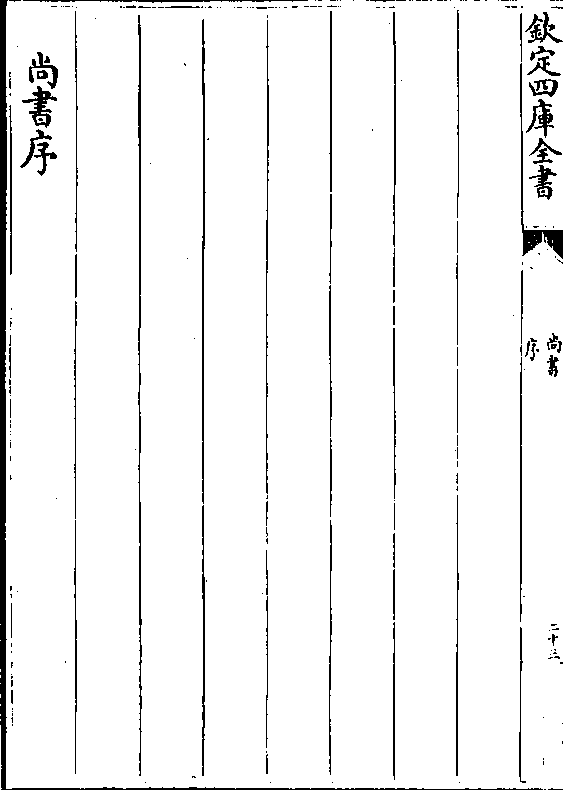 欽定四庫全書
尚書
序
二十三
尚書序